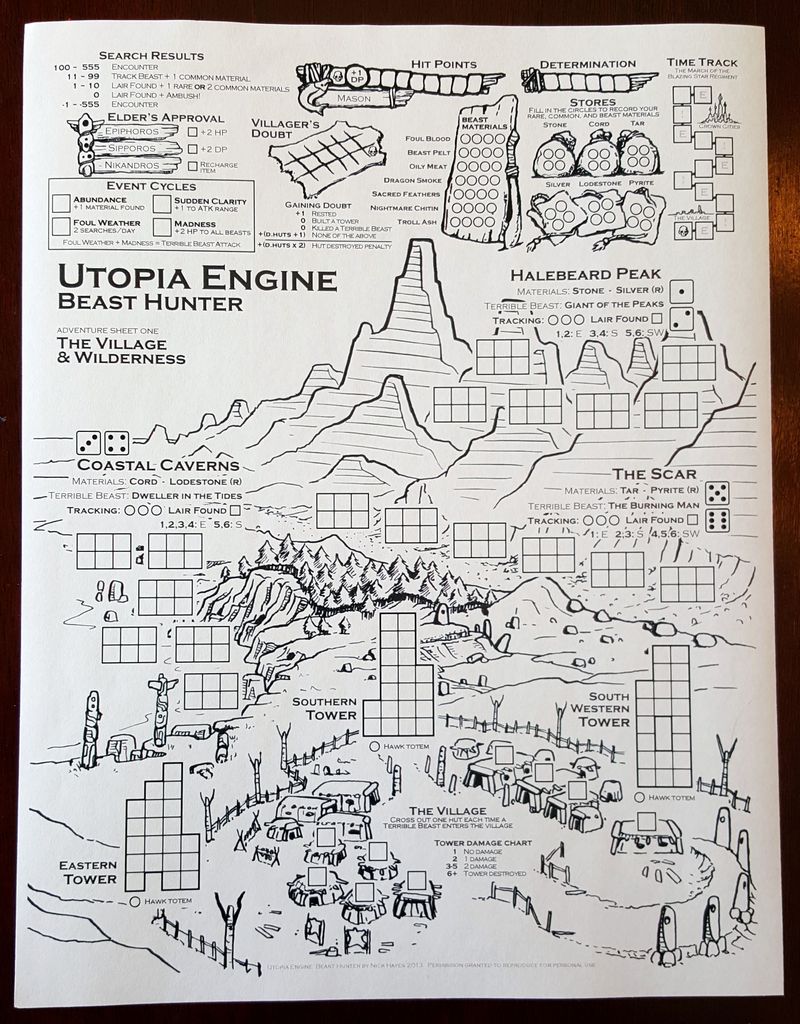 Search Results
100 - 555 Encounter
11 - 99 Track Beast + 1 common material
1 - 10 Lair Found + 1 rare or 2 common materials
0 Lair Found + Ambush!
-1 - -555 Encounter
Elder's Approval
Epiphoros +2 HP
Sipporos +2 DP
Nikandros Recharge Item
Event Cycles
Abundance
+1 material found
Sudden Clarity
+1 to ATK range
Foul Weather
2 searches/day
Madness
+2 HP to all beasts
Foul Weather + Madness = Terrible Beast Attack
Hit Points
+1 DP
Mason
Determination
Time Track
The March of the
Blazing Star Regiment
E
Crown Cities
E
E
E
The Village
E
Villager's
Doubt
Gaining Doubt
+1 Rested
0 Built a Tower
0 Killed a Terrible Beast
+(D.Huts +1) None of the above
+(D.Huts x 2) Hut destroyed penalty
Beast
Materials
Foul Blood
Beast Pelt
Oily Meat
Dragon Smoke
Sacred Feathers
Nightmare Chitin
Troll Ash
Stores
Fill in the circles to record your
rare, common, and beast materials
Stone Cord Tar
Silver Lodestone Pyrite
Utopia Engine
Beast Hunter
Adventure Sheet One
The Village
& Wilderness
Halebeard Peak
Materials: Stone - Silver (R)
Terrible Beast: Giant of the Peaks
Tracking: Lair Found
1,2: E 3,4: S 5,6: SW
Coastal Caverns
Materials: Cord - Lodestone (R)
Terrible Beast: Dweller in the Tides
Tracking: Lair Found
1,2,3,4: E 5,6: S
The Scar
Materials: Tar - Pyrite (R)
Terrible Beast: The Burning Man
Tracking: Lair Found
1: E 2,3: S 4,5,6: SW
Southern
Tower
Hawk Totem
South
Western
Tower
Hawk Totem
Eastern
Tower
Hawk Totem
The Village
Cross out one hut each time a
Terrible Beast enters the village
Tower Damage Chart
1 No damage
2 1 damage
3-5 2 damage
6+ Tower destroyed
Utopia Engine: Beast Hunter by Nick Hayes 2013 Permission granted to reproduce for personal use